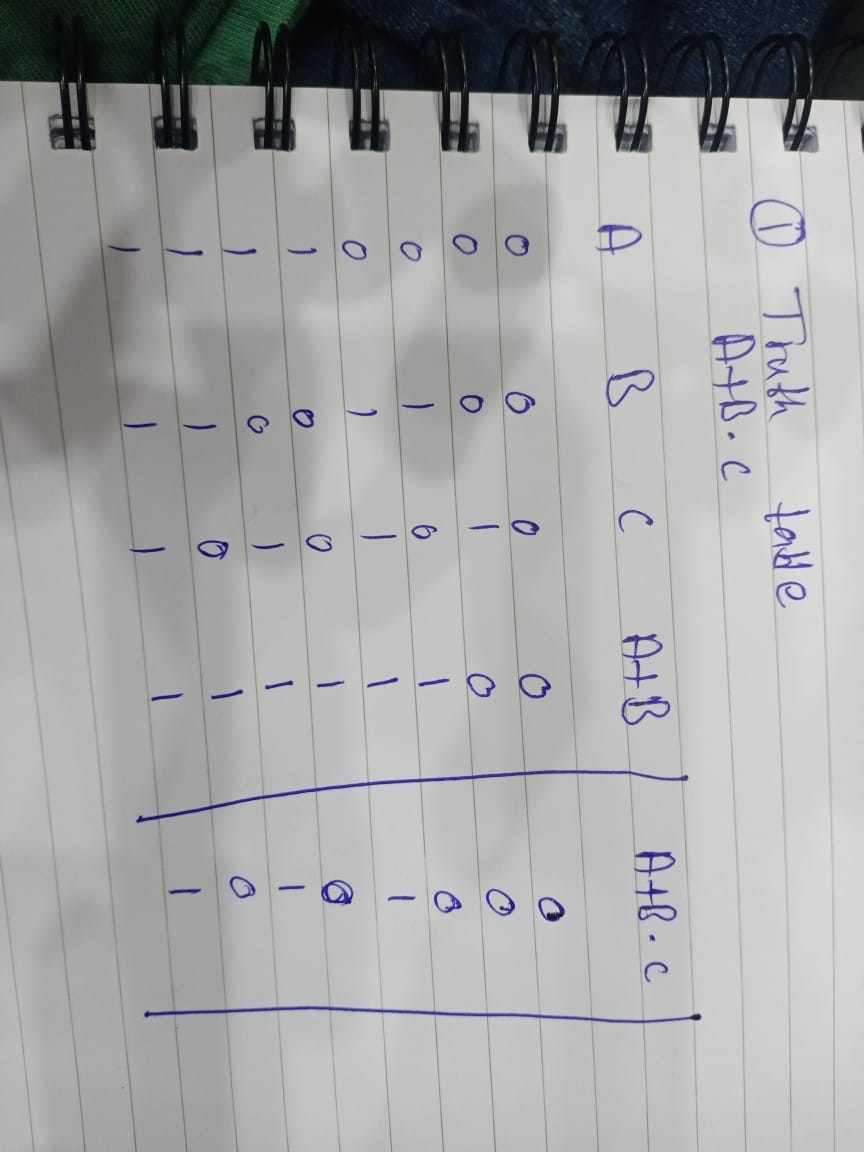 ① Truth table
A+B.C
A B C A+B A+B.C
0 0 0 0 0
0 0 1 0 0
0 1 0 1 0
0 1 1 1 1
1 0 0 1 0
1 0 1 1 1
1 1 0 1 0
1 1 1 1 1